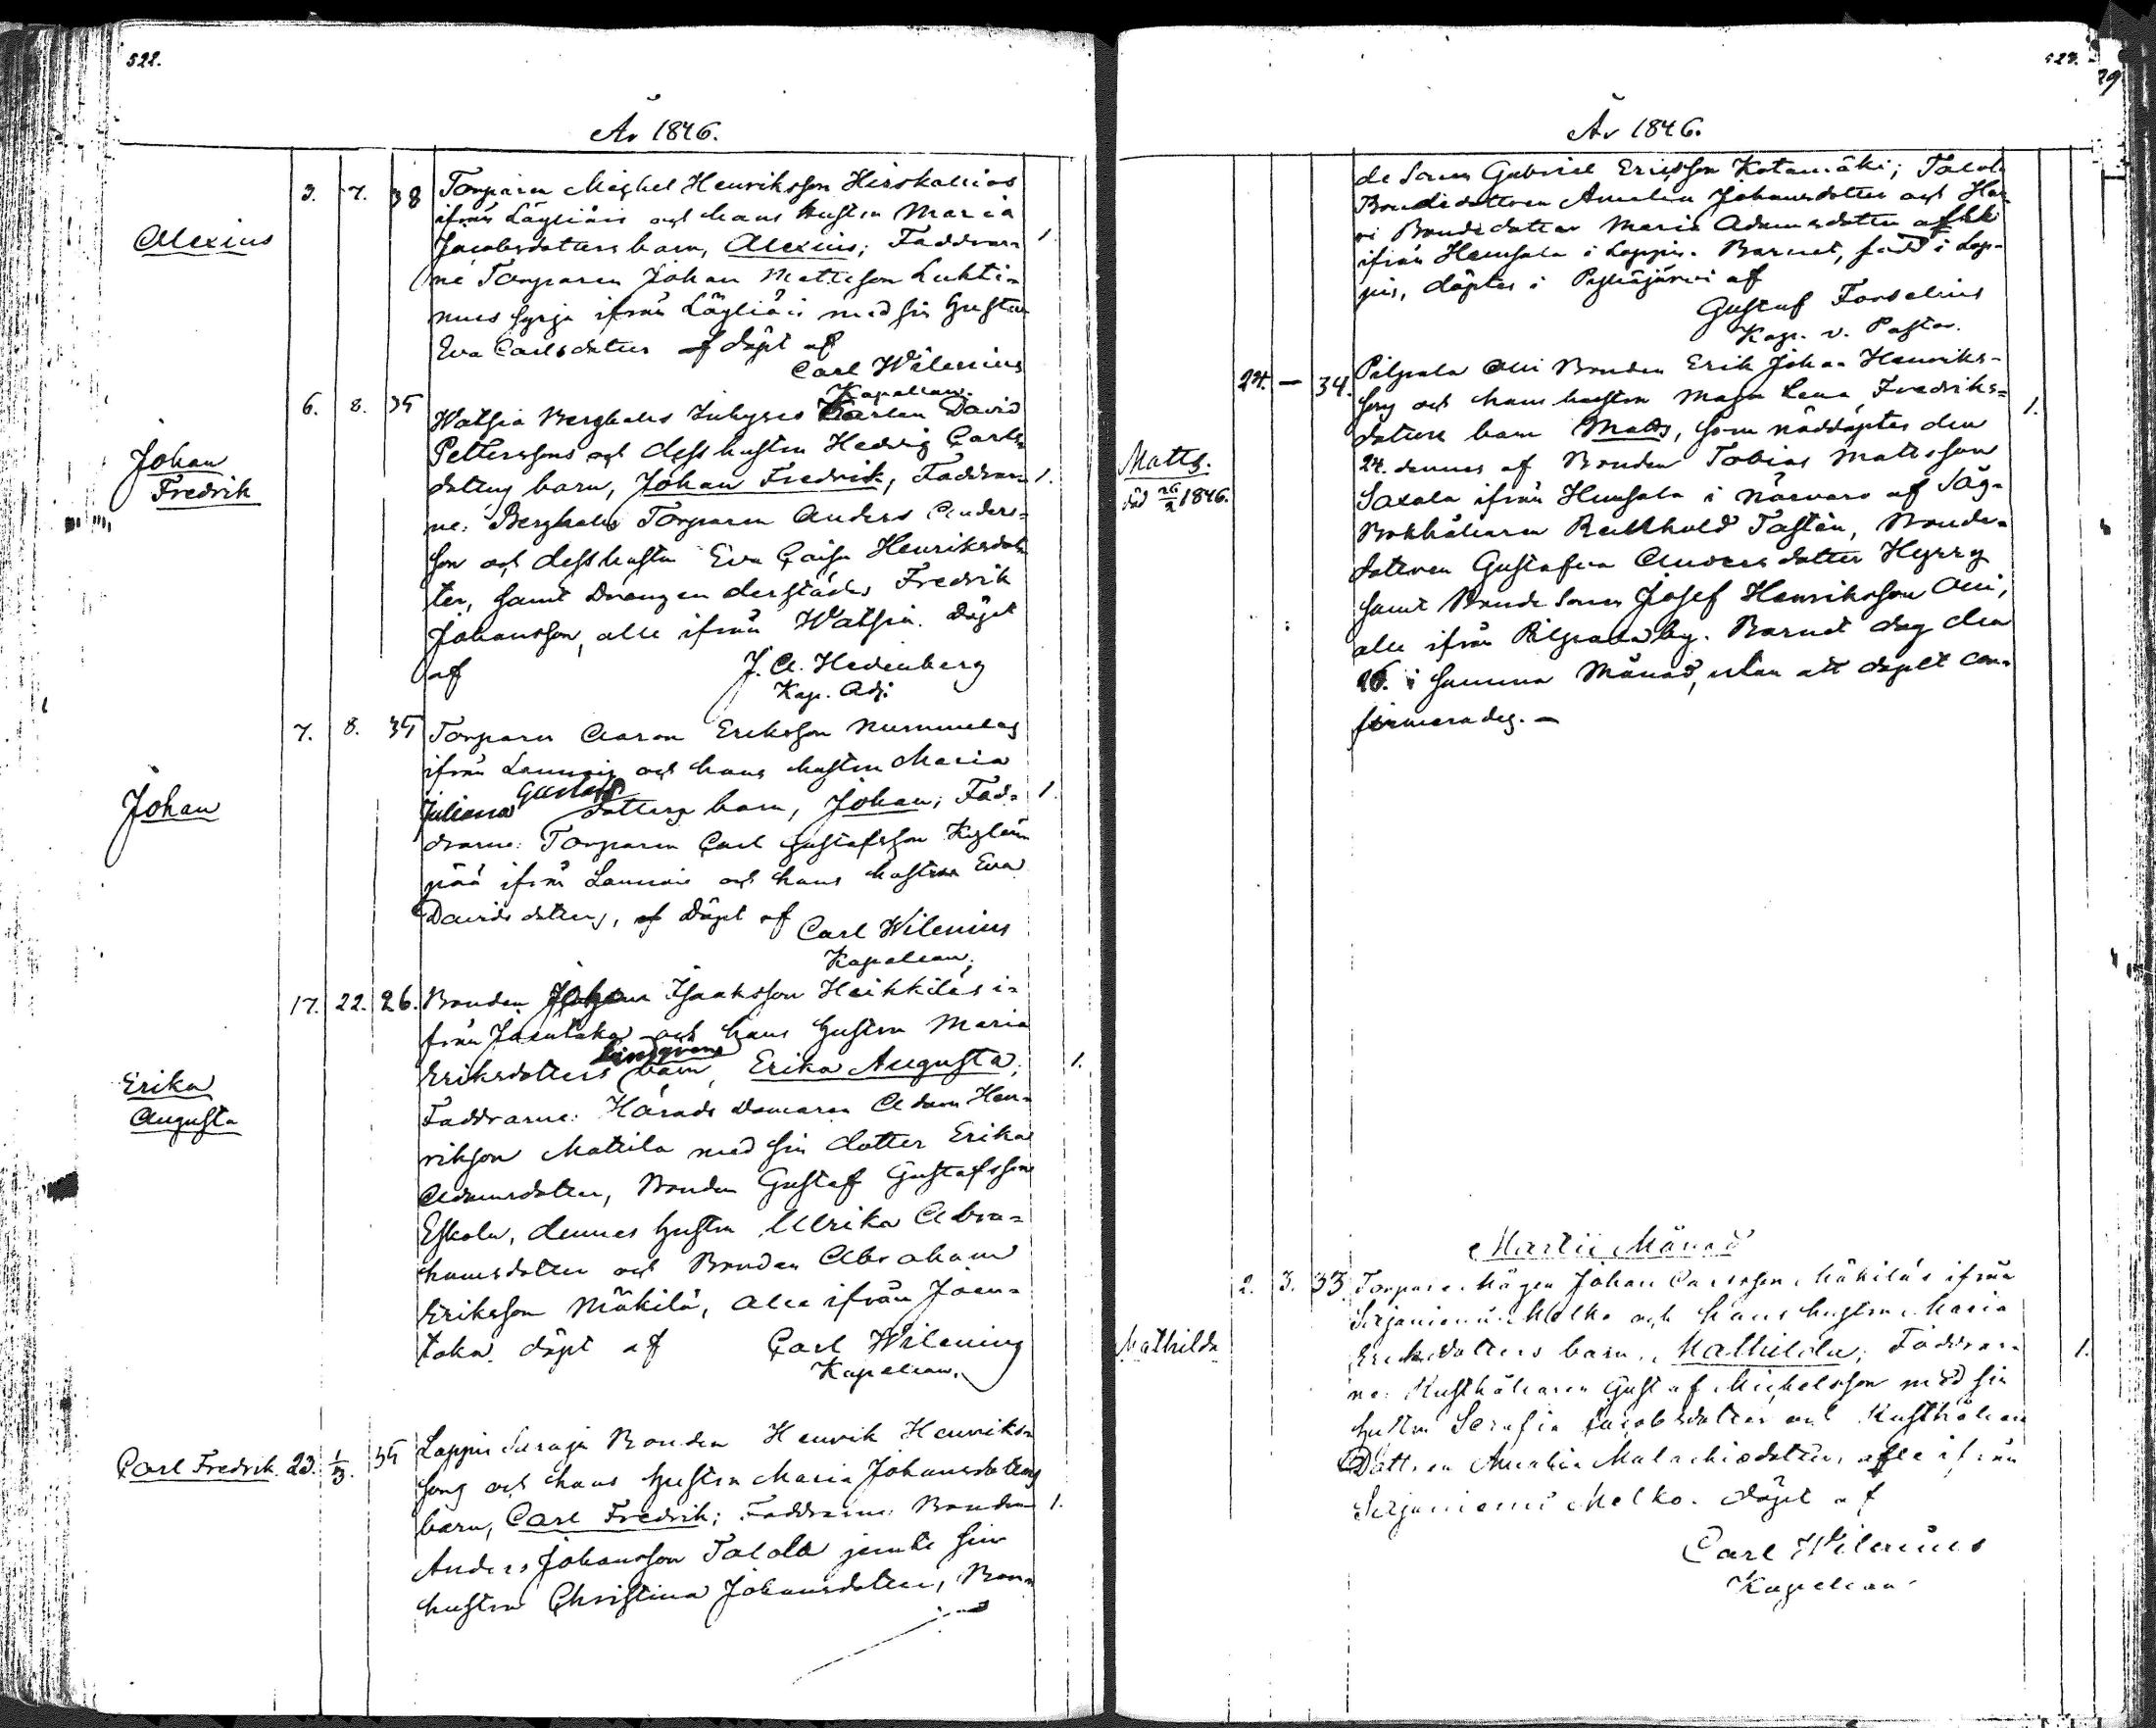 522.
År 1846.
Alexius
3. 7. 38 Torparen Michel Henriksson Hirskallios
ifrån Läyliäis och hans hustru Maria
Jacobsdotters barn, Alexius; Faddrar- 1.
ne Torparen Johan Mattsson Luhtin-
ifrån Läyliäis med sin hustru
Eva Carlsdotter döpt af
Carl Wilenius
Kapellan.
Johan
Fredrik
6. 8. 35 Watsia Berghälls Inhyses Karlen David
Petterssons och dess hustru Hedvig Carls-
dotters barn, Johan Fredrik, Faddrar- 1.
ne: Berghälls Torparen Anders Anders-
son och dess hustru Eva Caisa Henriksdot-
ter, samt Drängen derstädes Fredrik
Johansson, alle ifrån Watsia. Döpt
af J. A. Hedenberg
Kap. Adj.
Johan
7. 8. 35 Torparen Aaron Eriksson Nummelas
ifrån Launois och hans hustru Maria
Juliana Gustafs dotters barn, Johan; Fad- 1.
drarne: Torparen Carl Gustafsson Kylän-
pää ifrån Launois och hans hustru Eva
Davidsdotter, döpt af Carl Wilenius
Kapellan.
Erika
Augusta
17. 22. 26. Bonden Isaksson Heikkiläs i-
från Jaentaka och hans hustru Maria
Eriksdotters Lindqvens barn, Erika Augusta; 1.
Faddrarne: Härads Domaren Adam Hen-
rikson Mattila med sin dotter Erika
Adamsdotter, Bonden Gustaf Gustafsson
Eskola, dennes hustru Ulrika Abra-
hamsdotter och Bonden Abraham
Eriksson Mäkilä, alle ifrån Jaen-
taka. döpt af Carl Wilenius
Kapellan.
Carl Fredrik 23. 1/3. 35 Loppis Saraja Bonden Henrik Henriks-
sons och hans hustru Maria Johansdotters
barn, Carl Fredrik; Faddrarne: Bonden 1.
Anders Johansson Talola jemte sin
hustru Christina Johansdotter, Bon-
523.
29
År 1846.
de Sonen Gabriel Ericsson Kotamäki; Talola
Bondedottren Amelia Johansdotter och
Bondedotter Maria Adamsdotter alle
ifrån Hunsala i Loppis. Barnet, född i Lop-
pis, döptes i Pyhäjärvi af
Gustaf Forselius
Kap. v. Pastor.
Matts.
död 26/2 1846.
24. — 34. Pilpala Alli Bonden Erik Johan Henriks-
sons och hans hustru Maja Lena Fredriks-
dotters barn Matts, som nöddöptes den 1.
24. dennes af Bonden Tobias Mattsson
Saxala ifrån Hunsala i närvaro af Såg-
Bokhållaren Reinhold Tastén, Bonde-
dottren Gustafva Andersdotter Hyrry
samt Bonde Sonen Josef Henriksson Alli,
alle ifrån Pilpala by. Barnet dog den
26. i samma Månad, utan att döpet con-
firmerades. —
Martii Månad
Mathilda
2. 3. 33 Torpare Mågen Johan Carlsson Mäkiläs ifrån
Sirjaniemi Melko och hans hustru Maria
Ericksdotters barn, Mathilda; Faddrar- 1.
ne: Rusthållaren Gustaf Michelsson med sin
hustru Serafia Jacobsdotter och Rusthållare
Dottren Amalia Malachiasdotter, alle ifrån
Sirjaniemi Melko. döpt af
Carl Wilenius
Kapellan.